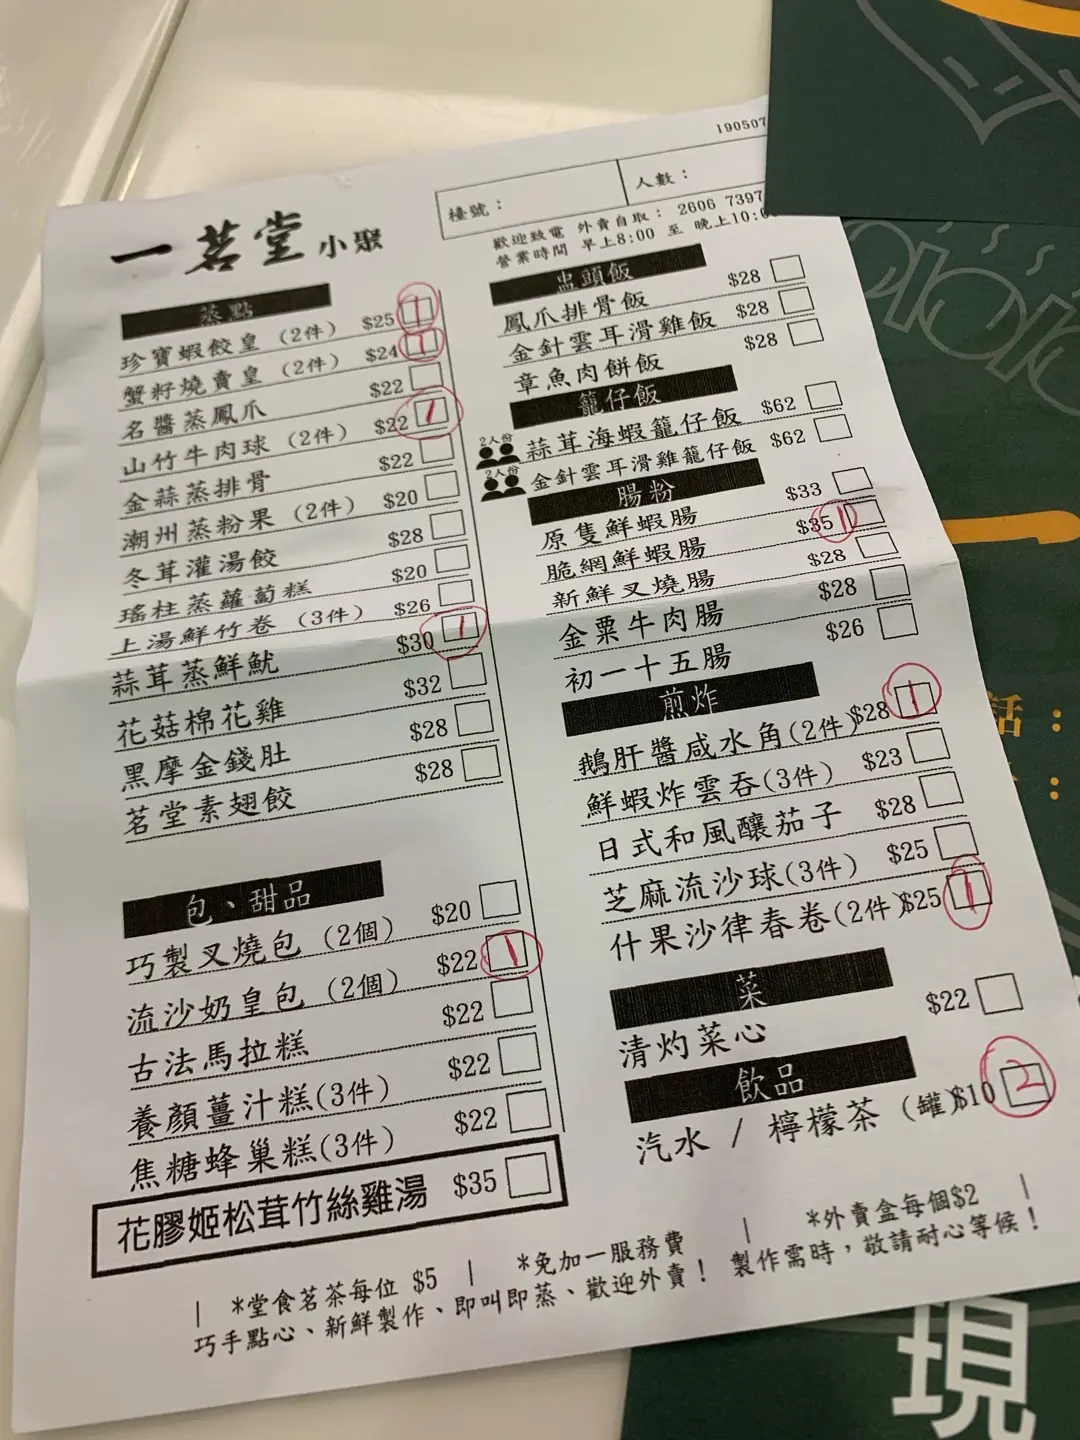 190507
檯號：
人數：
一茗堂小聚
歡迎致電 外賣自取： 2606 7397
營業時間 早上8:00 至 晚上10:0
蒸點
珍寶蝦餃皇 (2件) $25 1
蟹籽燒賣皇 (2件) $24 1
名醬蒸鳳爪 $22
山竹牛肉球 (2件) $22 1
金蒜蒸排骨 $22
潮州蒸粉果 (2件) $20
冬茸灌湯餃 $28
瑤柱蒸蘿蔔糕 $20
上湯鮮竹卷 (3件) $26
蒜茸蒸鮮魷 $30 1
花菇棉花雞 $32
黑摩金錢肚 $28
茗堂素翅餃 $28
包、甜品
巧製叉燒包 (2個) $20
流沙奶皇包 (2個) $22 1
古法馬拉糕 $22
養顏薑汁糕(3件) $22
焦糖蜂巢糕(3件) $22
花膠姬松茸竹絲雞湯 $35
盅頭飯
鳳爪排骨飯 $28
金針雲耳滑雞飯 $28
章魚肉餅飯 $28
籠仔飯
2人份 蒜茸海蝦籠仔飯 $62
2人份 金針雲耳滑雞籠仔飯 $62
腸粉
原隻鮮蝦腸 $33
脆網鮮蝦腸 $35 1
新鮮叉燒腸 $28
金粟牛肉腸 $28
初一十五腸 $26
煎炸
鵝肝醬咸水角(2件) $28 1
鮮蝦炸雲吞(3件) $23
日式和風釀茄子 $28
芝麻流沙球(3件) $25
什果沙律春卷(2件) $25 1
菜
清灼菜心 $22
飲品
汽水 / 檸檬茶 (罐) $10 2
| *堂食茗茶每位 $5 | *免加一服務費 | *外賣盒每個$2 |
巧手點心、新鮮製作、即叫即蒸、歡迎外賣！ 製作需時，敬請耐心等候！
話：
：
現